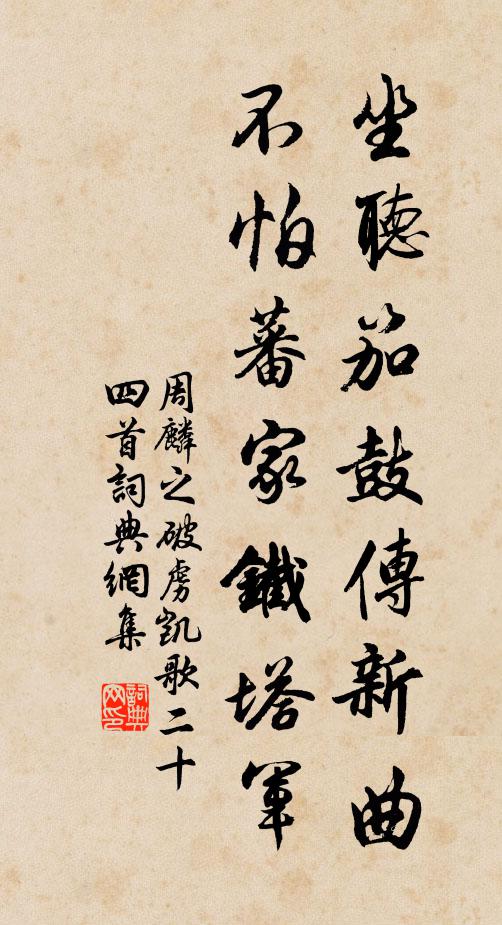 坐聽笳鼓傳新曲
不怕蕃家鐵塔軍
周麟之破虜凱歌二十
四首詞典網集
詞典
网印